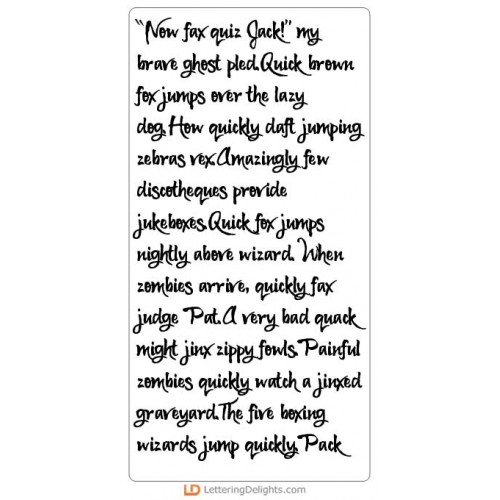 “Now fax quiz Jack!” my
brave ghost pled.Quick brown
fox jumps over the lazy
dog.How quickly daft jumping
zebras vex.Amazingly few
discotheques provide
jukeboxes.Quick fox jumps
nightly above wizard. When
zombies arrive, quickly fax
judge Pat.A very bad quack
might jinx zippy fowls.Painful
zombies quickly watch a jinxed
graveyard.The five boxing
wizards jump quickly.Pack
LD LetteringDelights.com